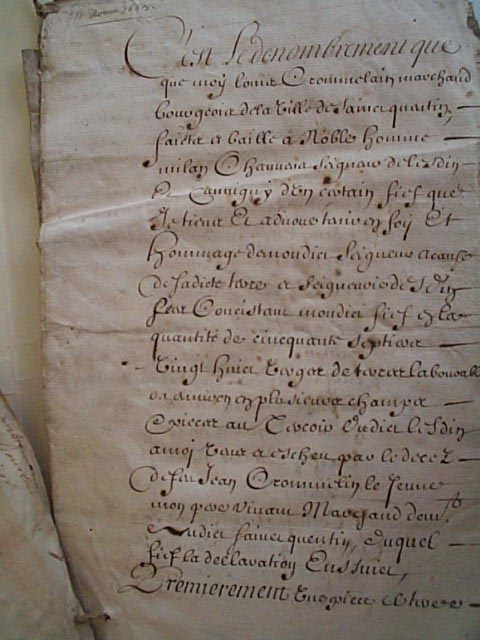 C'est le denombrement que
que moy louis Crommelain marchand
bourgeois de la Ville de Sainct quentin
faicts et baille a Noble homme
milan Chauvais Seigneur de lesdin
Et d'un certain fief que
Je tiens Et advoue tenir en foy Et
hommage de mondict Seigneur a cause
de sadicte terre et Seigneurie de
Consistant mondict fief en la
quantité de cincquante septiers
Vingt huict Verges de terres labourable
ou environ en plusieurs champs
Et pieces au Terroir dudict lesdin
a moy Venu et escheu par le decez
de feu Jean Crommelin le Jeune
mon pere vivant Marchand dem.
audict sainct quentin, duquel
fief la declaration Ensuict,
Premierement Une piece